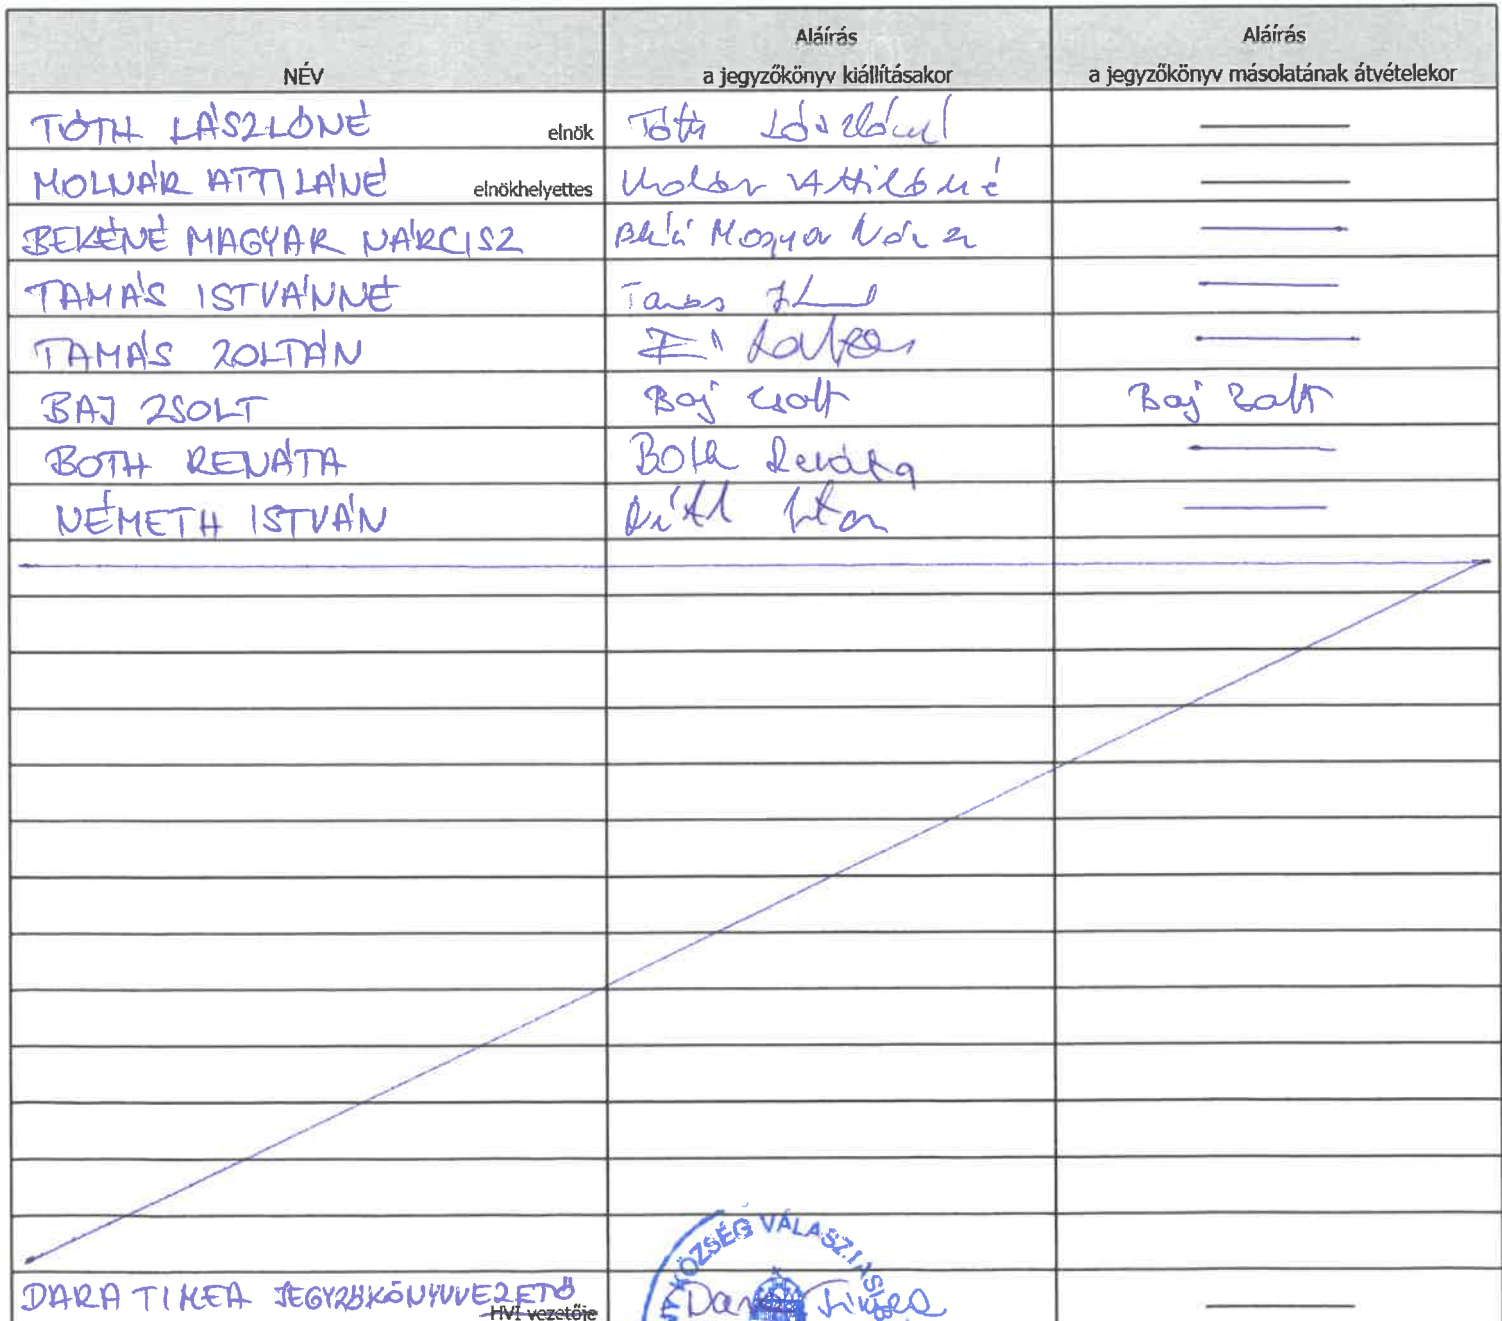 NÉV
Aláírás
a jegyzőkönyv kiállításakor
Aláírás
a jegyzőkönyv másolatának átvételekor
TÓTH LÁSZLÓNÉ elnök Tóth Lászlóné
MOLNÁR ATTILÁNÉ elnökhelyettes Molnár Attiláné
BEKÉNÉ MAGYAR NÁRCISZ
TAMÁS ISTVÁNNÉ Tamás
TAMÁS ZOLTÁN
BAJ ZSOLT Baj Zsolt Baj Zsolt
BOTH RENÁTA Both Renáta
NÉMETH ISTVÁN
KÖZSÉG VÁLASZTÁSI
DARA TIMEA JEGYZŐKÖNYVVEZETŐ Dara Timea
HVI vezetője